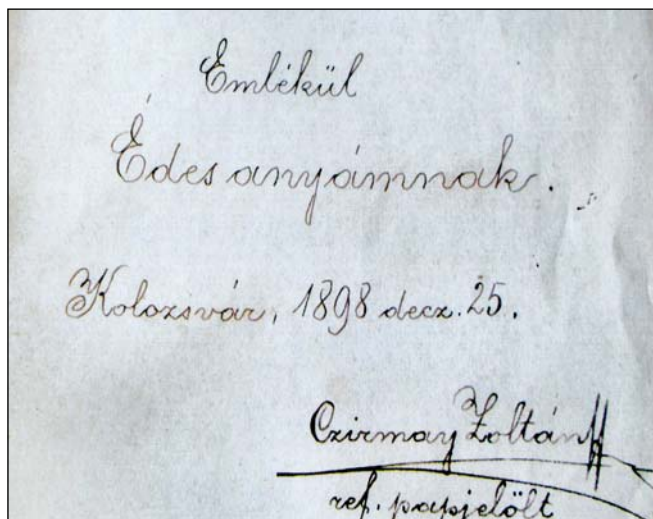 Emlékül
Édes anyámnak.
Kolozsvár, 1898 decz. 25.
Czirmay Zoltán
ref. papjelölt